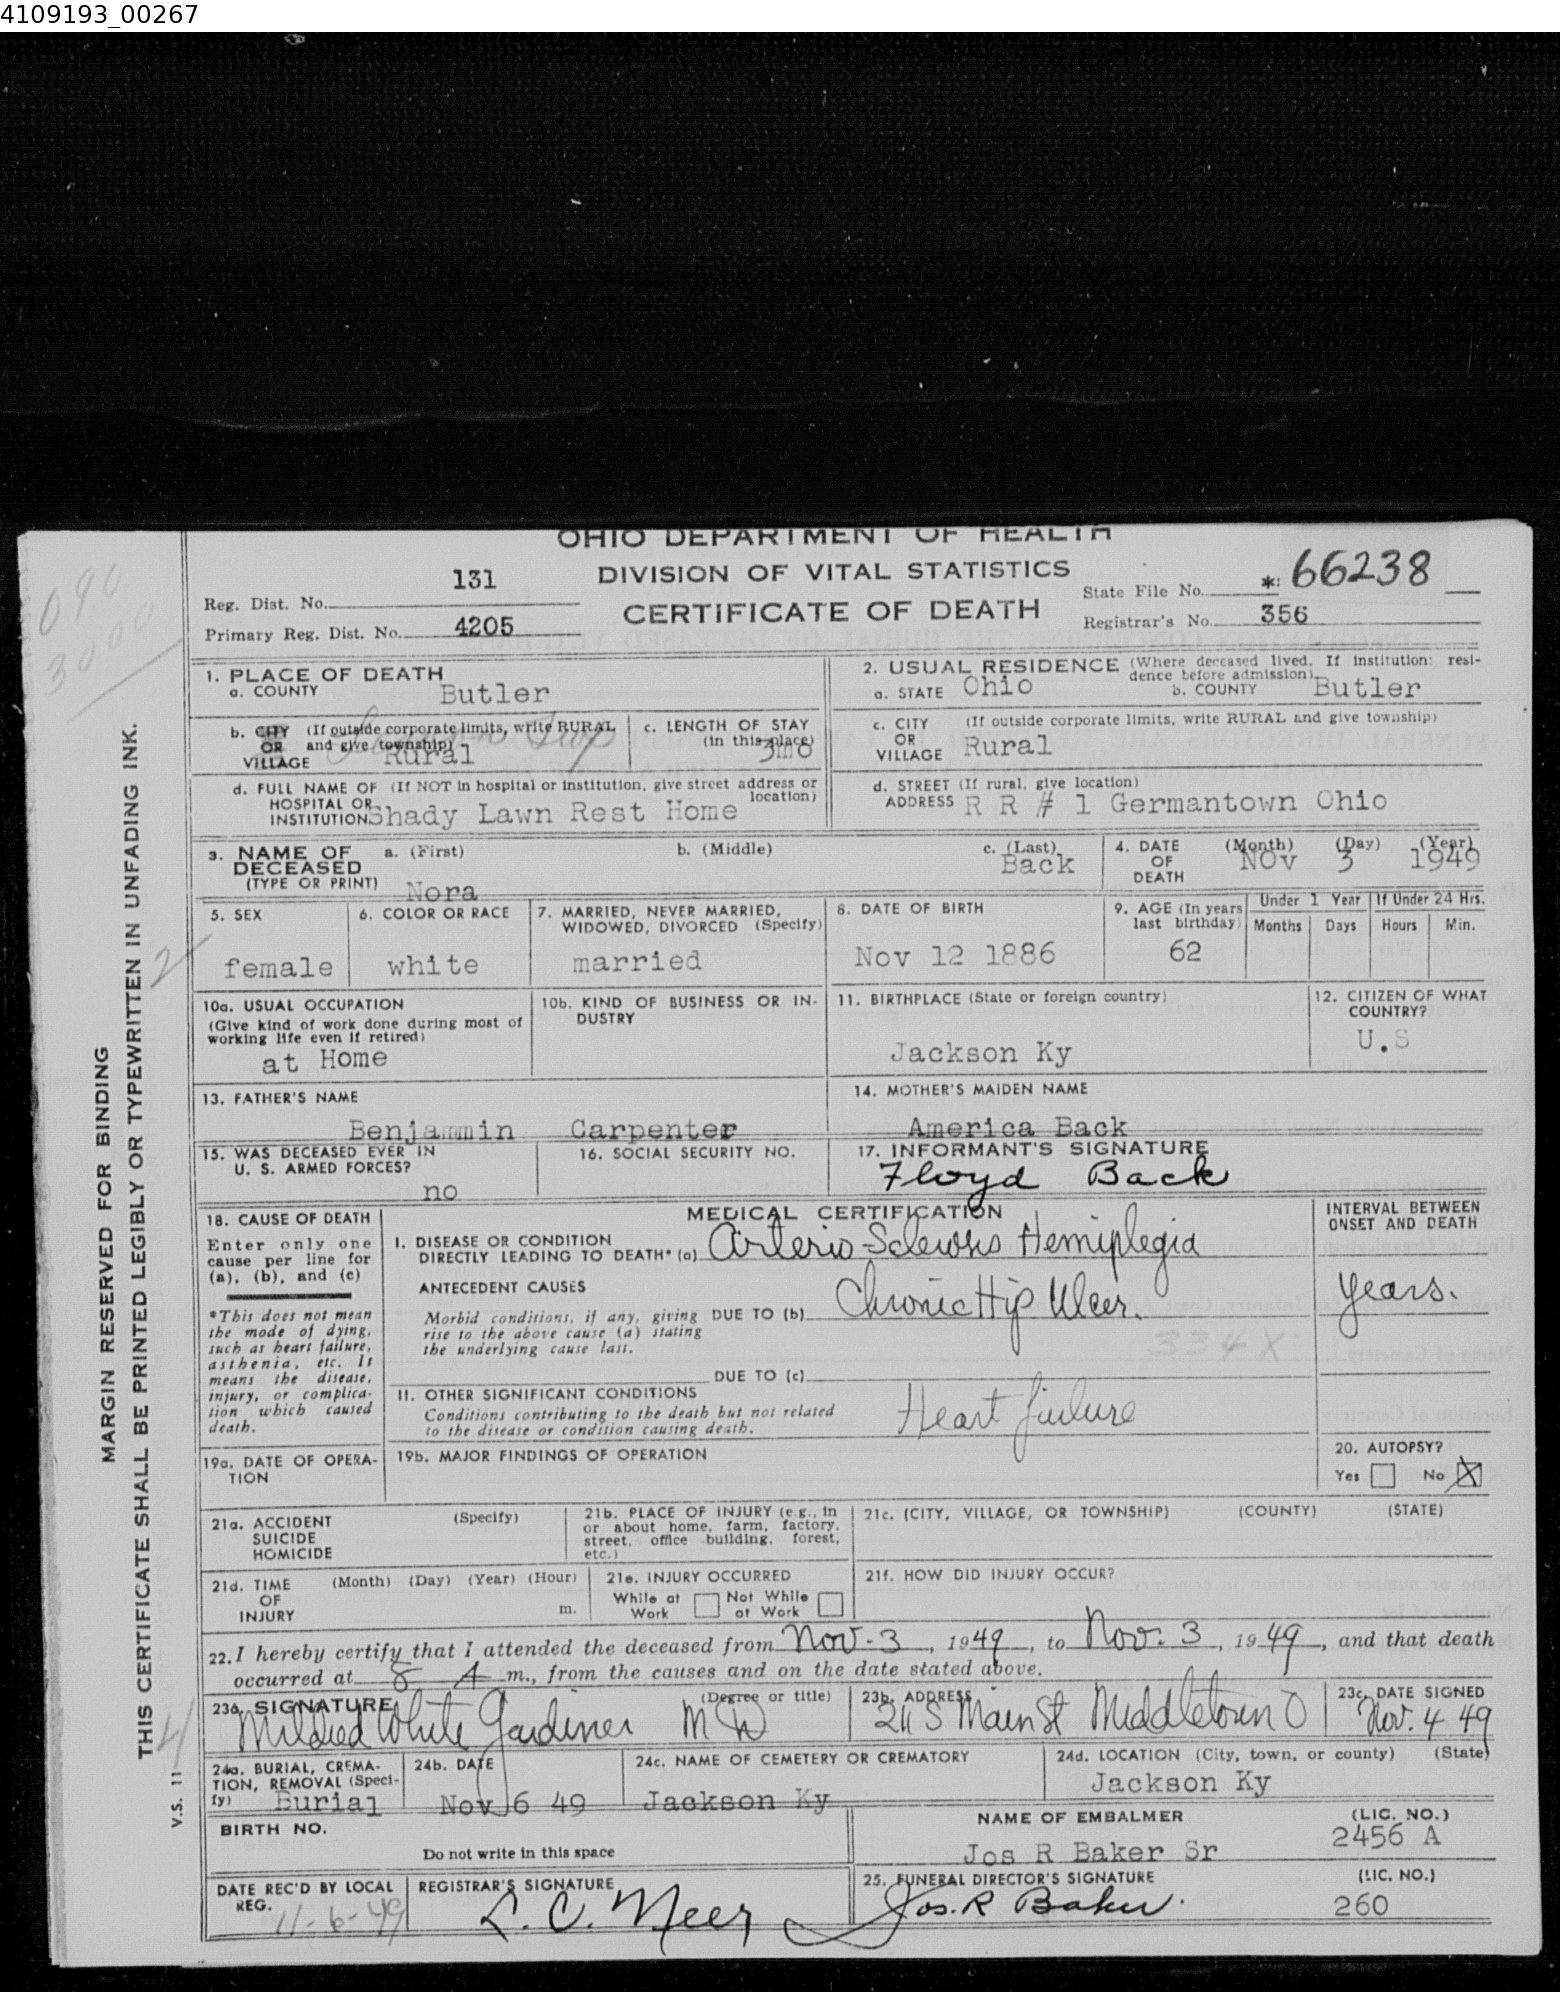 4109193_00267
OHIO DEPARTMENT OF HEALTH
DIVISION OF VITAL STATISTICS
CERTIFICATE OF DEATH
Reg. Dist. No. 131
Primary Reg. Dist. No. 4205
State File No. *: 66238
Registrar's No. 356
090
3000
MARGIN RESERVED FOR BINDING
THIS CERTIFICATE SHALL BE PRINTED LEGIBLY OR TYPEWRITTEN IN UNFADING INK.
V.S. 11
1. PLACE OF DEATH
a. COUNTY Butler
2. USUAL RESIDENCE (Where deceased lived. If institution: residence before admission).
a. STATE Ohio b. COUNTY Butler
b. CITY OR VILLAGE (If outside corporate limits, write RURAL and give township) Rural Twp
c. LENGTH OF STAY (in this place) 3mo
c. CITY OR VILLAGE (If outside corporate limits, write RURAL and give township)
Rural
d. FULL NAME OF HOSPITAL OR INSTITUTION (If NOT in hospital or institution, give street address or location)
Shady Lawn Rest Home
d. STREET ADDRESS (If rural, give location)
R R # 1 Germantown Ohio
3. NAME OF DECEASED (TYPE OR PRINT) a. (First) b. (Middle) c. (Last)
Nora Back
4. DATE OF DEATH (Month) (Day) (Year)
NOv 3 1949
5. SEX
female
6. COLOR OR RACE
white
7. MARRIED, NEVER MARRIED, WIDOWED, DIVORCED (Specify)
married
8. DATE OF BIRTH
Nov 12 1886
9. AGE (In years last birthday)
62
Under 1 Year
Months Days
If Under 24 Hrs.
Hours Min.
10a. USUAL OCCUPATION
(Give kind of work done during most of working life even if retired)
at Home
10b. KIND OF BUSINESS OR INDUSTRY
11. BIRTHPLACE (State or foreign country)
Jackson Ky
12. CITIZEN OF WHAT COUNTRY?
U.S
13. FATHER'S NAME
Benjammin Carpenter
14. MOTHER'S MAIDEN NAME
America Back
15. WAS DECEASED EVER IN U. S. ARMED FORCES?
no
16. SOCIAL SECURITY NO.
17. INFORMANT'S SIGNATURE
Floyd Back
18. CAUSE OF DEATH
Enter only one cause per line for (a), (b), and (c)
*This does not mean the mode of dying, such as heart failure, asthenia, etc. It means the disease, injury, or complication which caused death.
MEDICAL CERTIFICATION
I. DISEASE OR CONDITION DIRECTLY LEADING TO DEATH* (a) Arterio-Sclerosis Hemiplegia
ANTECEDENT CAUSES
Morbid conditions, if any, giving rise to the above cause (a) stating the underlying cause last.
DUE TO (b) Chronic Hip Ulcer.
334X
DUE TO (c)
II. OTHER SIGNIFICANT CONDITIONS
Conditions contributing to the death but not related to the disease or condition causing death.
Heart failure
INTERVAL BETWEEN ONSET AND DEATH
years.
19a. DATE OF OPERATION
19b. MAJOR FINDINGS OF OPERATION
20. AUTOPSY?
Yes No X
21a. ACCIDENT SUICIDE HOMICIDE (Specify)
21b. PLACE OF INJURY (e.g., in or about home, farm, factory, street, office building, forest, etc.)
21c. (CITY, VILLAGE, OR TOWNSHIP) (COUNTY) (STATE)
21d. TIME OF INJURY (Month) (Day) (Year) (Hour) m.
21e. INJURY OCCURRED
While at Work Not While at Work
21f. HOW DID INJURY OCCUR?
22. I hereby certify that I attended the deceased from Nov-3, 1949, to Nov. 3, 1949, and that death
occurred at 8 A m., from the causes and on the date stated above.
23a. SIGNATURE (Degree or title)
Mildred White Gardiner M D
23b. ADDRESS
211 S Main St Middletown O
23c. DATE SIGNED
Nov. 4 49
24a. BURIAL, CREMATION, REMOVAL (Specify)
Burial
24b. DATE
Nov 6 49
24c. NAME OF CEMETERY OR CREMATORY
Jackson Ky
24d. LOCATION (City, town, or county) (State)
Jackson Ky
BIRTH NO.
Do not write in this space
NAME OF EMBALMER (LIC. NO.)
Jos R Baker Sr 2456 A
DATE REC'D BY LOCAL REG.
11-6-49
REGISTRAR'S SIGNATURE
25. FUNERAL DIRECTOR'S SIGNATURE (LIC. NO.)
Jos. R Baker. 260